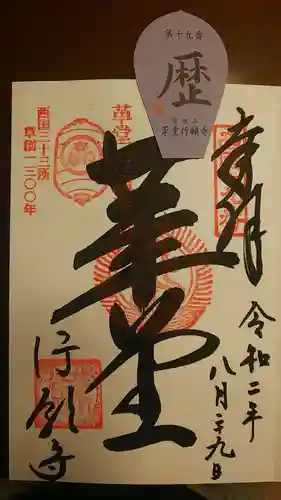 第十九番
歴
霊麀山
革堂行願寺
奉拝
令和二年
八月二十九日
革堂
行願寺
西国三十三所
草創一三〇〇年